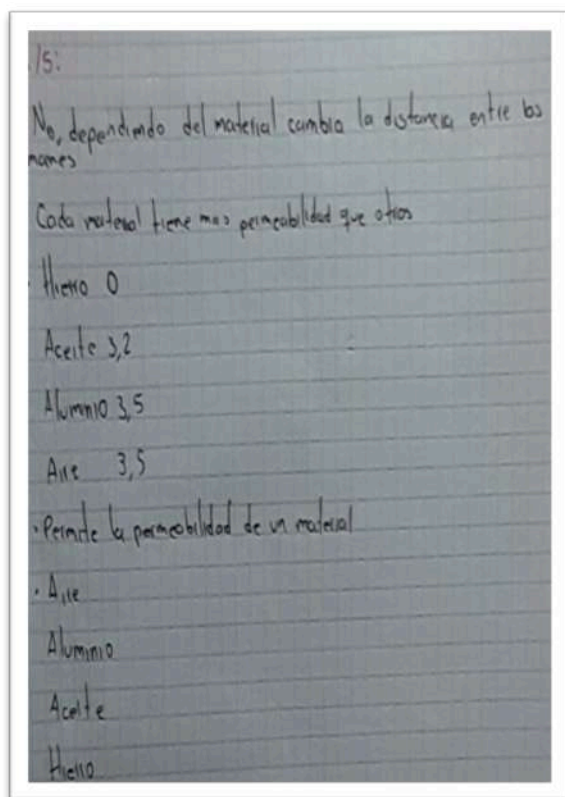 15:
No, dependiendo del material cambia la distancia entre los
manes
Cada material tiene mas permeabilidad que otros
Hierro 0
Aceite 3,2
Aluminio 3,5
Aire 3,5
· Permite la permeabilidad de un material
· Aire
Aluminio
Aceite
Hierro